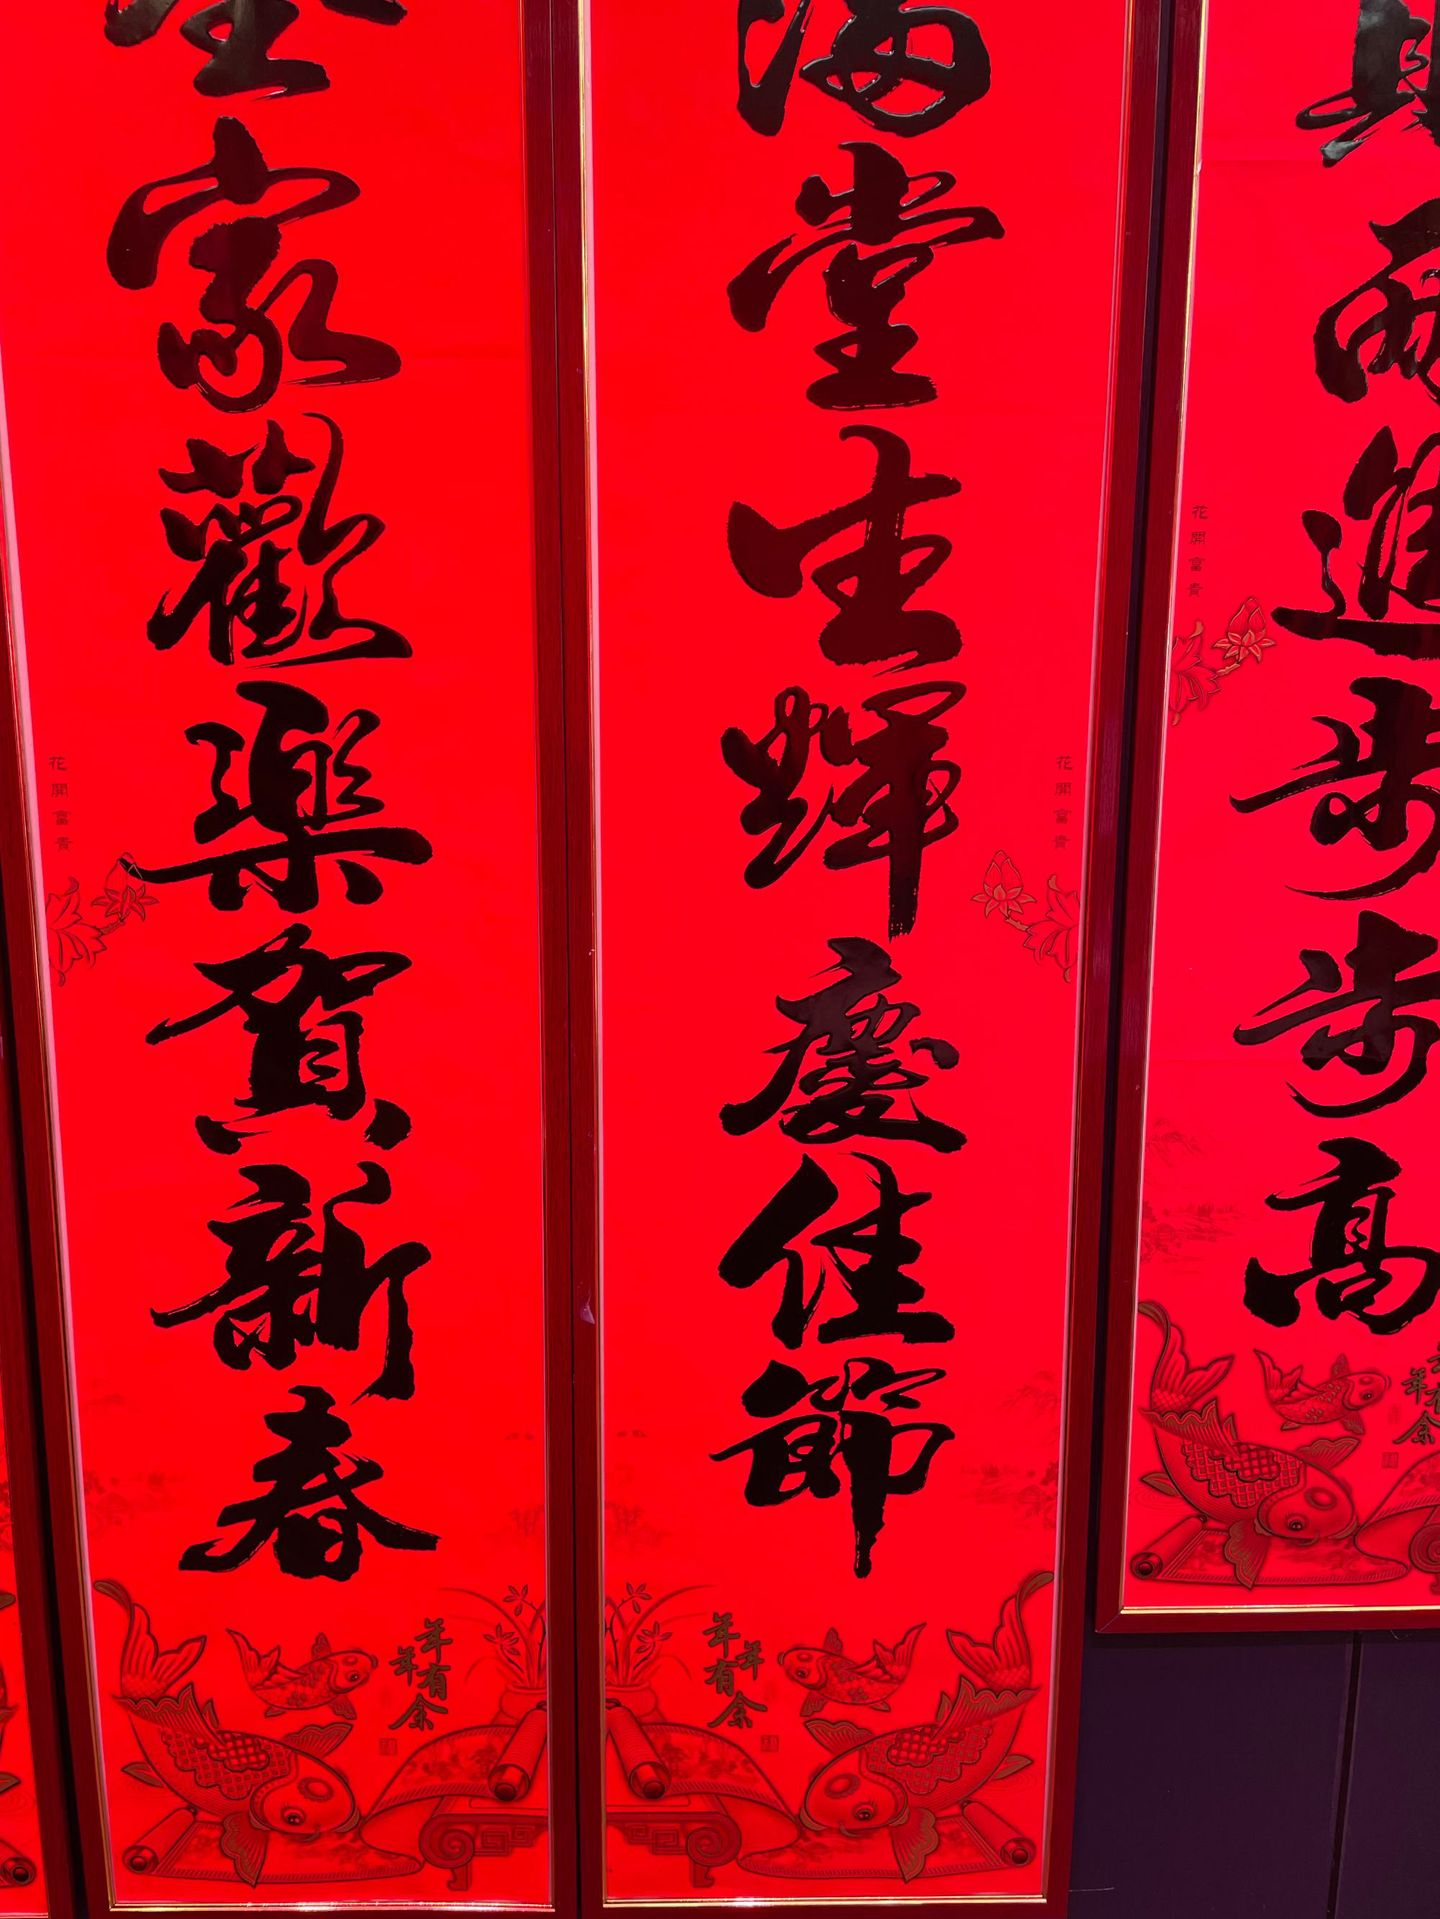 財兩進步步高
花開富貴
年年有余
滿堂生輝慶佳節
花開富貴
年年有余
全家歡樂賀新春
花開富貴
年年有余